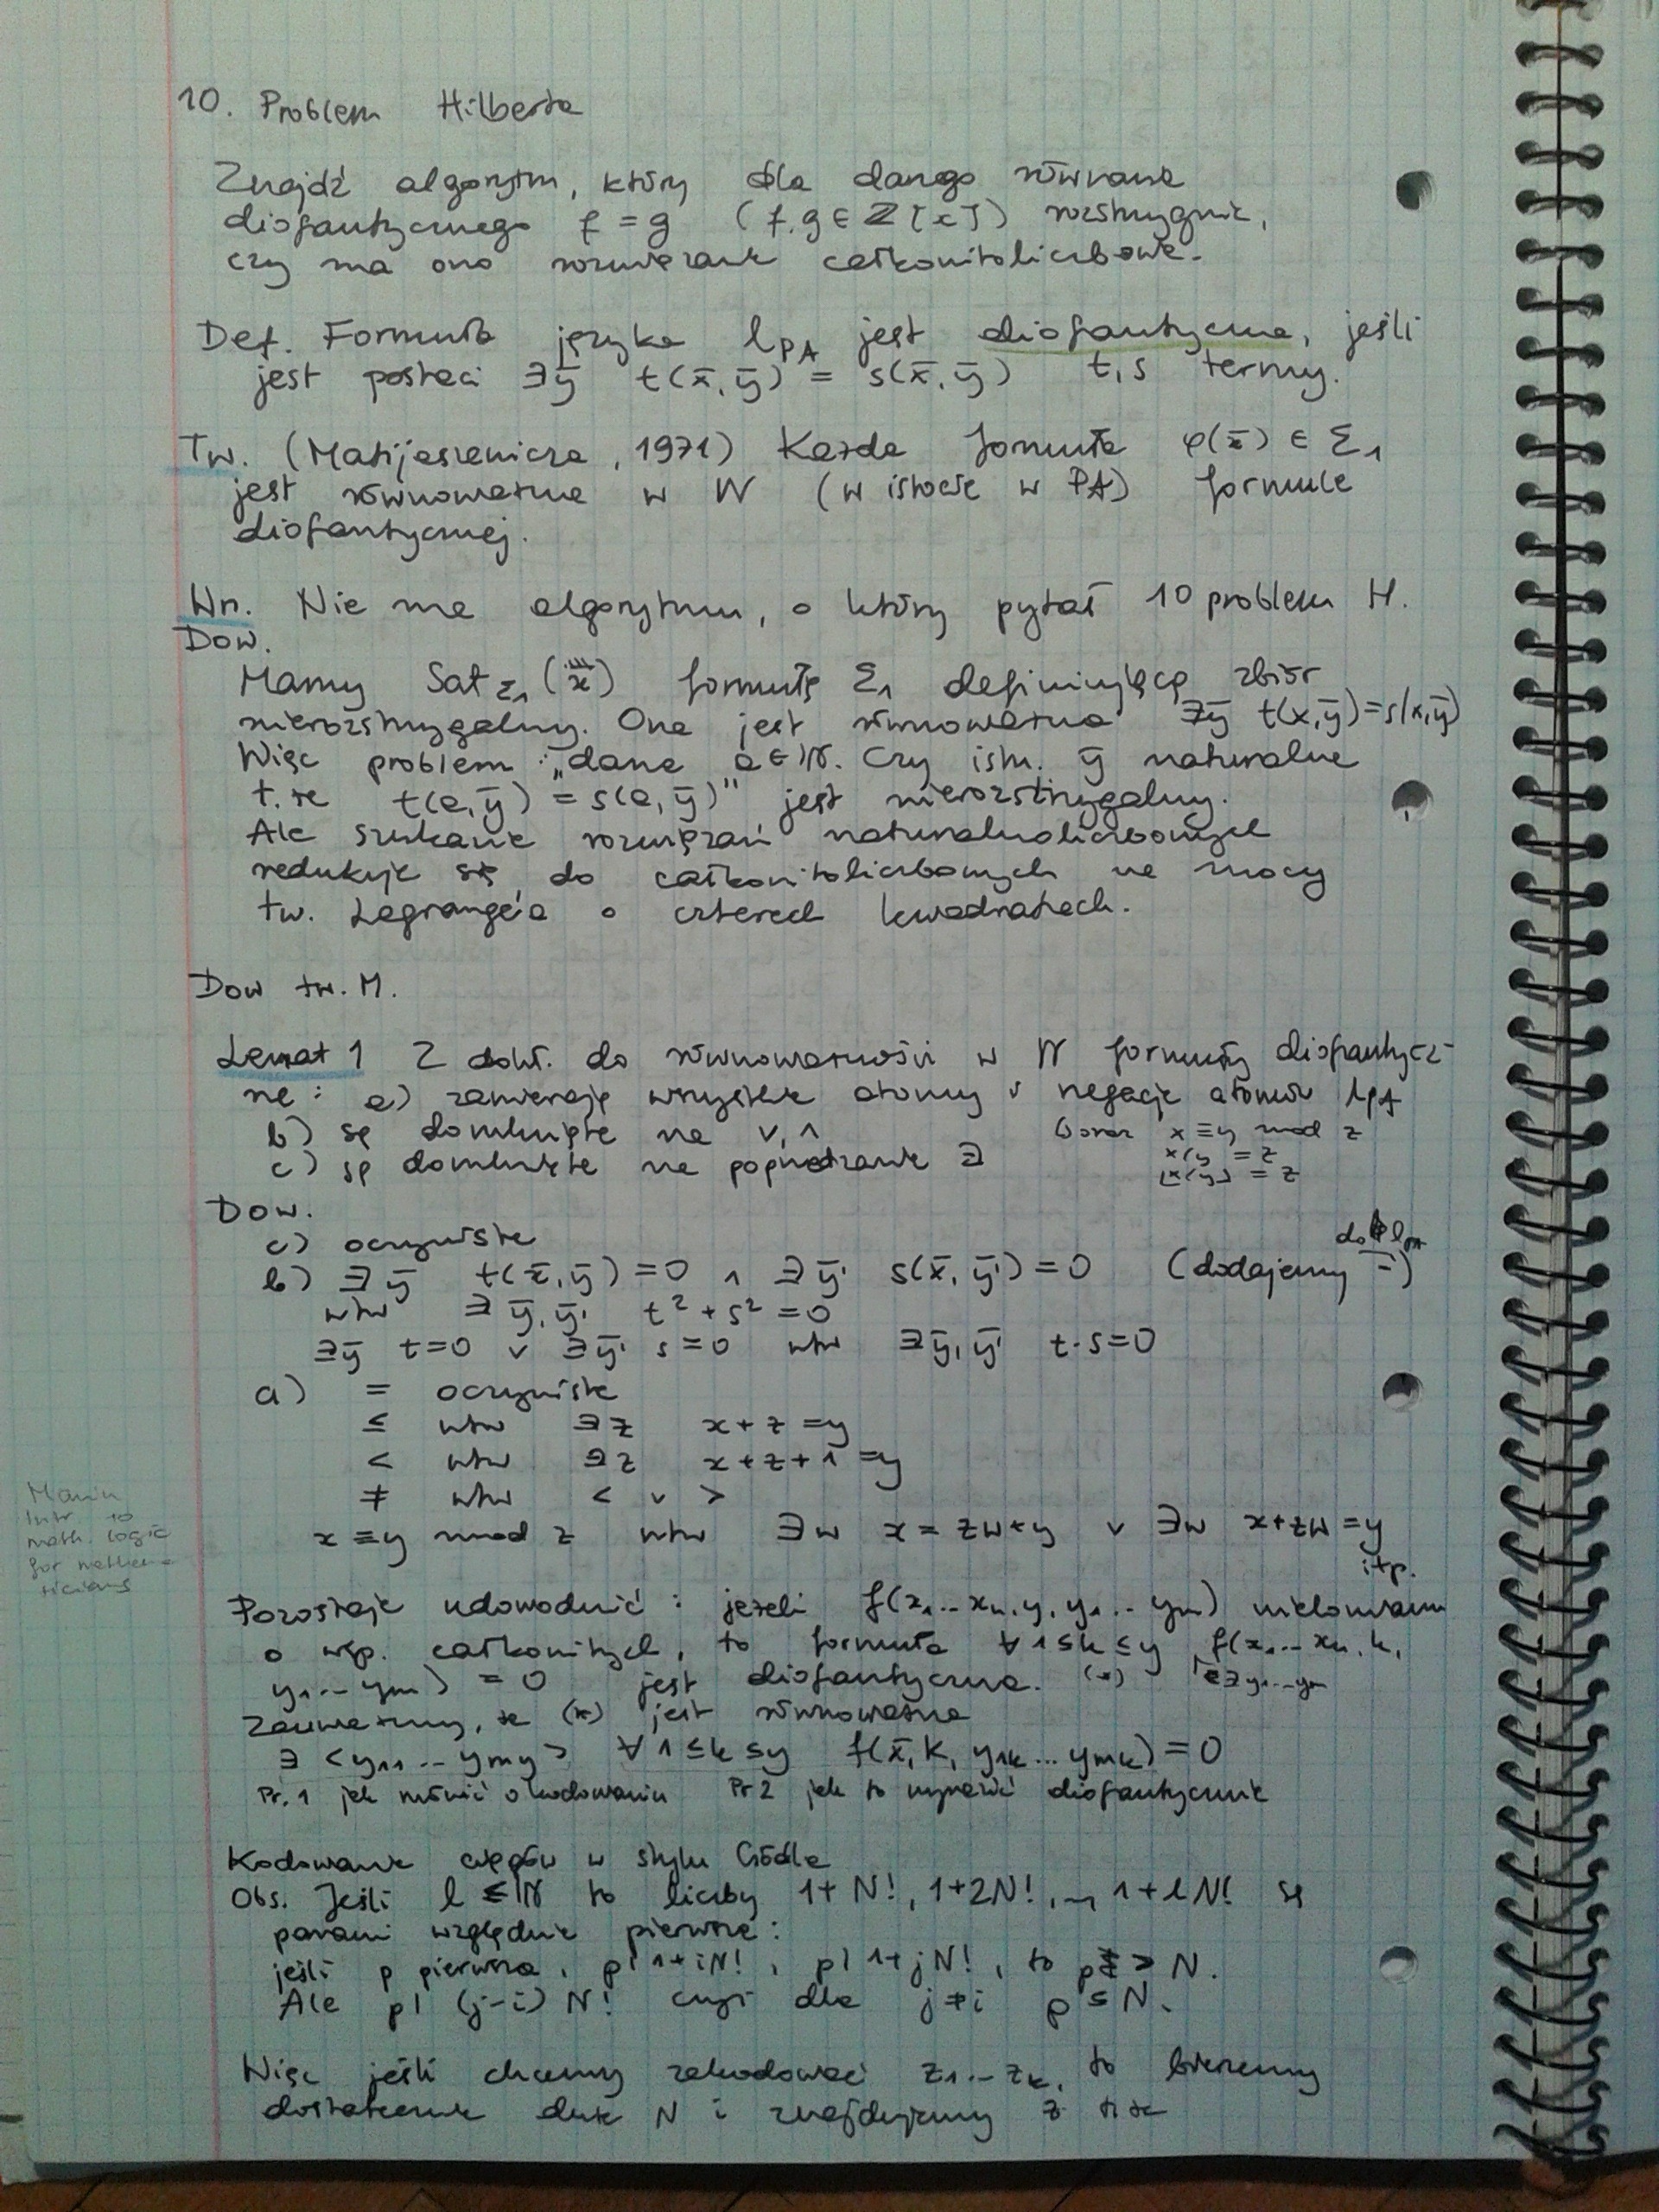 10. Problem Hilberta
Znajdź algorytm, który dla danego równania
diofantycznego f = g (f, g ∈ ℤ[x̄]) rozstrzygnie,
czy ma ono rozwiązanie całkowitoliczbowe.
Def. Formuła języka L_PA jest diofantyczna, jeśli
jest postaci ∃ȳ t(x̄, ȳ) = s(x̄, ȳ) t, s termy.
Tw. (Matijasiewicza, 1971) Każda formuła φ(x̄) ∈ Σ₁
jest równoważna w ℕ (w istocie w PA) formule
diofantycznej.
Wn. Nie ma algorytmu, o który pytał 10 problem H.
Dow.
Mamy Sat_Σ₁(x) formułę Σ₁ definiującą zbiór
nierozstrzygalny. Ona jest równoważna ∃ȳ t(x,ȳ)=s(x,ȳ)
Więc problem: „dane a∈ℕ. Czy istn. ȳ naturalne
t.że t(a,ȳ) = s(a,ȳ)" jest nierozstrzygalny.
Ale szukanie rozwiązań naturalnoliczbowych
redukuje się do całkowitoliczbowych na mocy
tw. Lagrange'a o czterech kwadratach.
Dow tw. M.
Lemat 1 Z dokł. do równoważności w ℕ formuły diofantycz-
ne: a) zawierają wszystkie atomy i negacje atomów L_PA
b) są domknięte na ∨, ∧ oraz x ≡ y mod z
c) są domknięte na poprzedzanie ∃ x/y = z
⌊x/y⌋ = z
Dow.
c) oczywiste
b) ∃ȳ t(x̄,ȳ)=0 ∧ ∃ȳ' s(x̄,ȳ')=0 (dodajemy - do L_PA)
wtw ∃ȳ,ȳ' t²+s²=0
∃ȳ t=0 ∨ ∃ȳ' s=0 wtw ∃ȳ,ȳ' t·s=0
a) = oczywiste
≤ wtw ∃z x+z=y
< wtw ∃z x+z+1=y
≠ wtw < ∨ >
x≡y mod z wtw ∃w x=zw+y ∨ ∃w x+zw=y
itp.
Manin
Intr. to
math. logic
for mathema-
ticians
Pozostaje udowodnić: jeżeli f(x₁...xₙ,y,y₁...yₘ) wielomianem
o wsp. całkowitych, to formuła ∀1≤k≤y f(x₁...xₙ,k,
y₁...yₘ) = 0 jest diofantyczna. (*) ∃y₁...yₘ
Zauważmy, że (*) jest równoważna
∃<y₁₁...y_my> ∀1≤k≤y f(x̄,k,y₁ₖ...yₘₖ)=0
Pr.1 jak mówić o kodowaniu Pr 2 jak to wyrazić diofantycznie
Kodowanie ciągów w stylu Gödla
Obs. Jeśli l ≤ N to liczby 1+N!, 1+2N!, ..., 1+lN! są
parami względnie pierwsze:
jeśli p pierwsza, p|1+iN!, p|1+jN!, to p > N.
Ale p|(j-i)N! czyli dla j≠i p≤N.
Więc jeśli chcemy zakodować z₁...zₖ, to bierzemy
dostatecznie duże N i znajdujemy z t.że